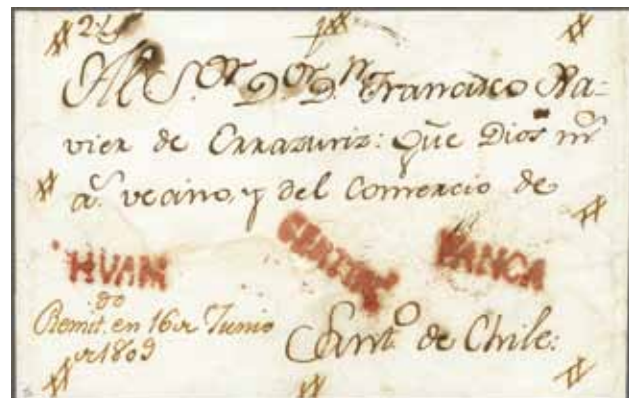 Al S.or D.or D.n Francisco Xa=
vier de Errazuriz: Que Dios m.s
a.s vecino, y del Comercio de
HUAM CERTIF VANCA
Remit.do en 16 de Junio
de 1809
Sant.o de Chile: